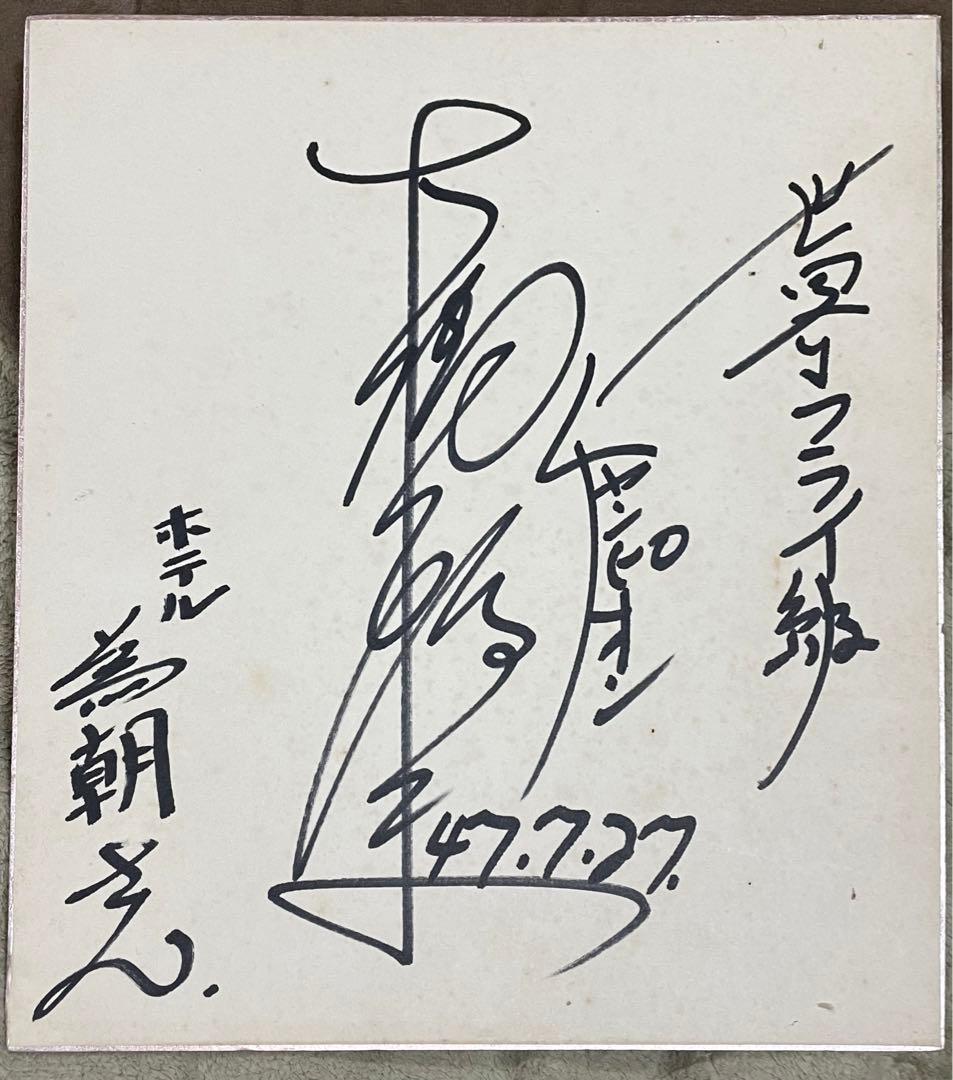 世界フライ級
チャンピオン
47.7.27.
ホテル
為朝さん.